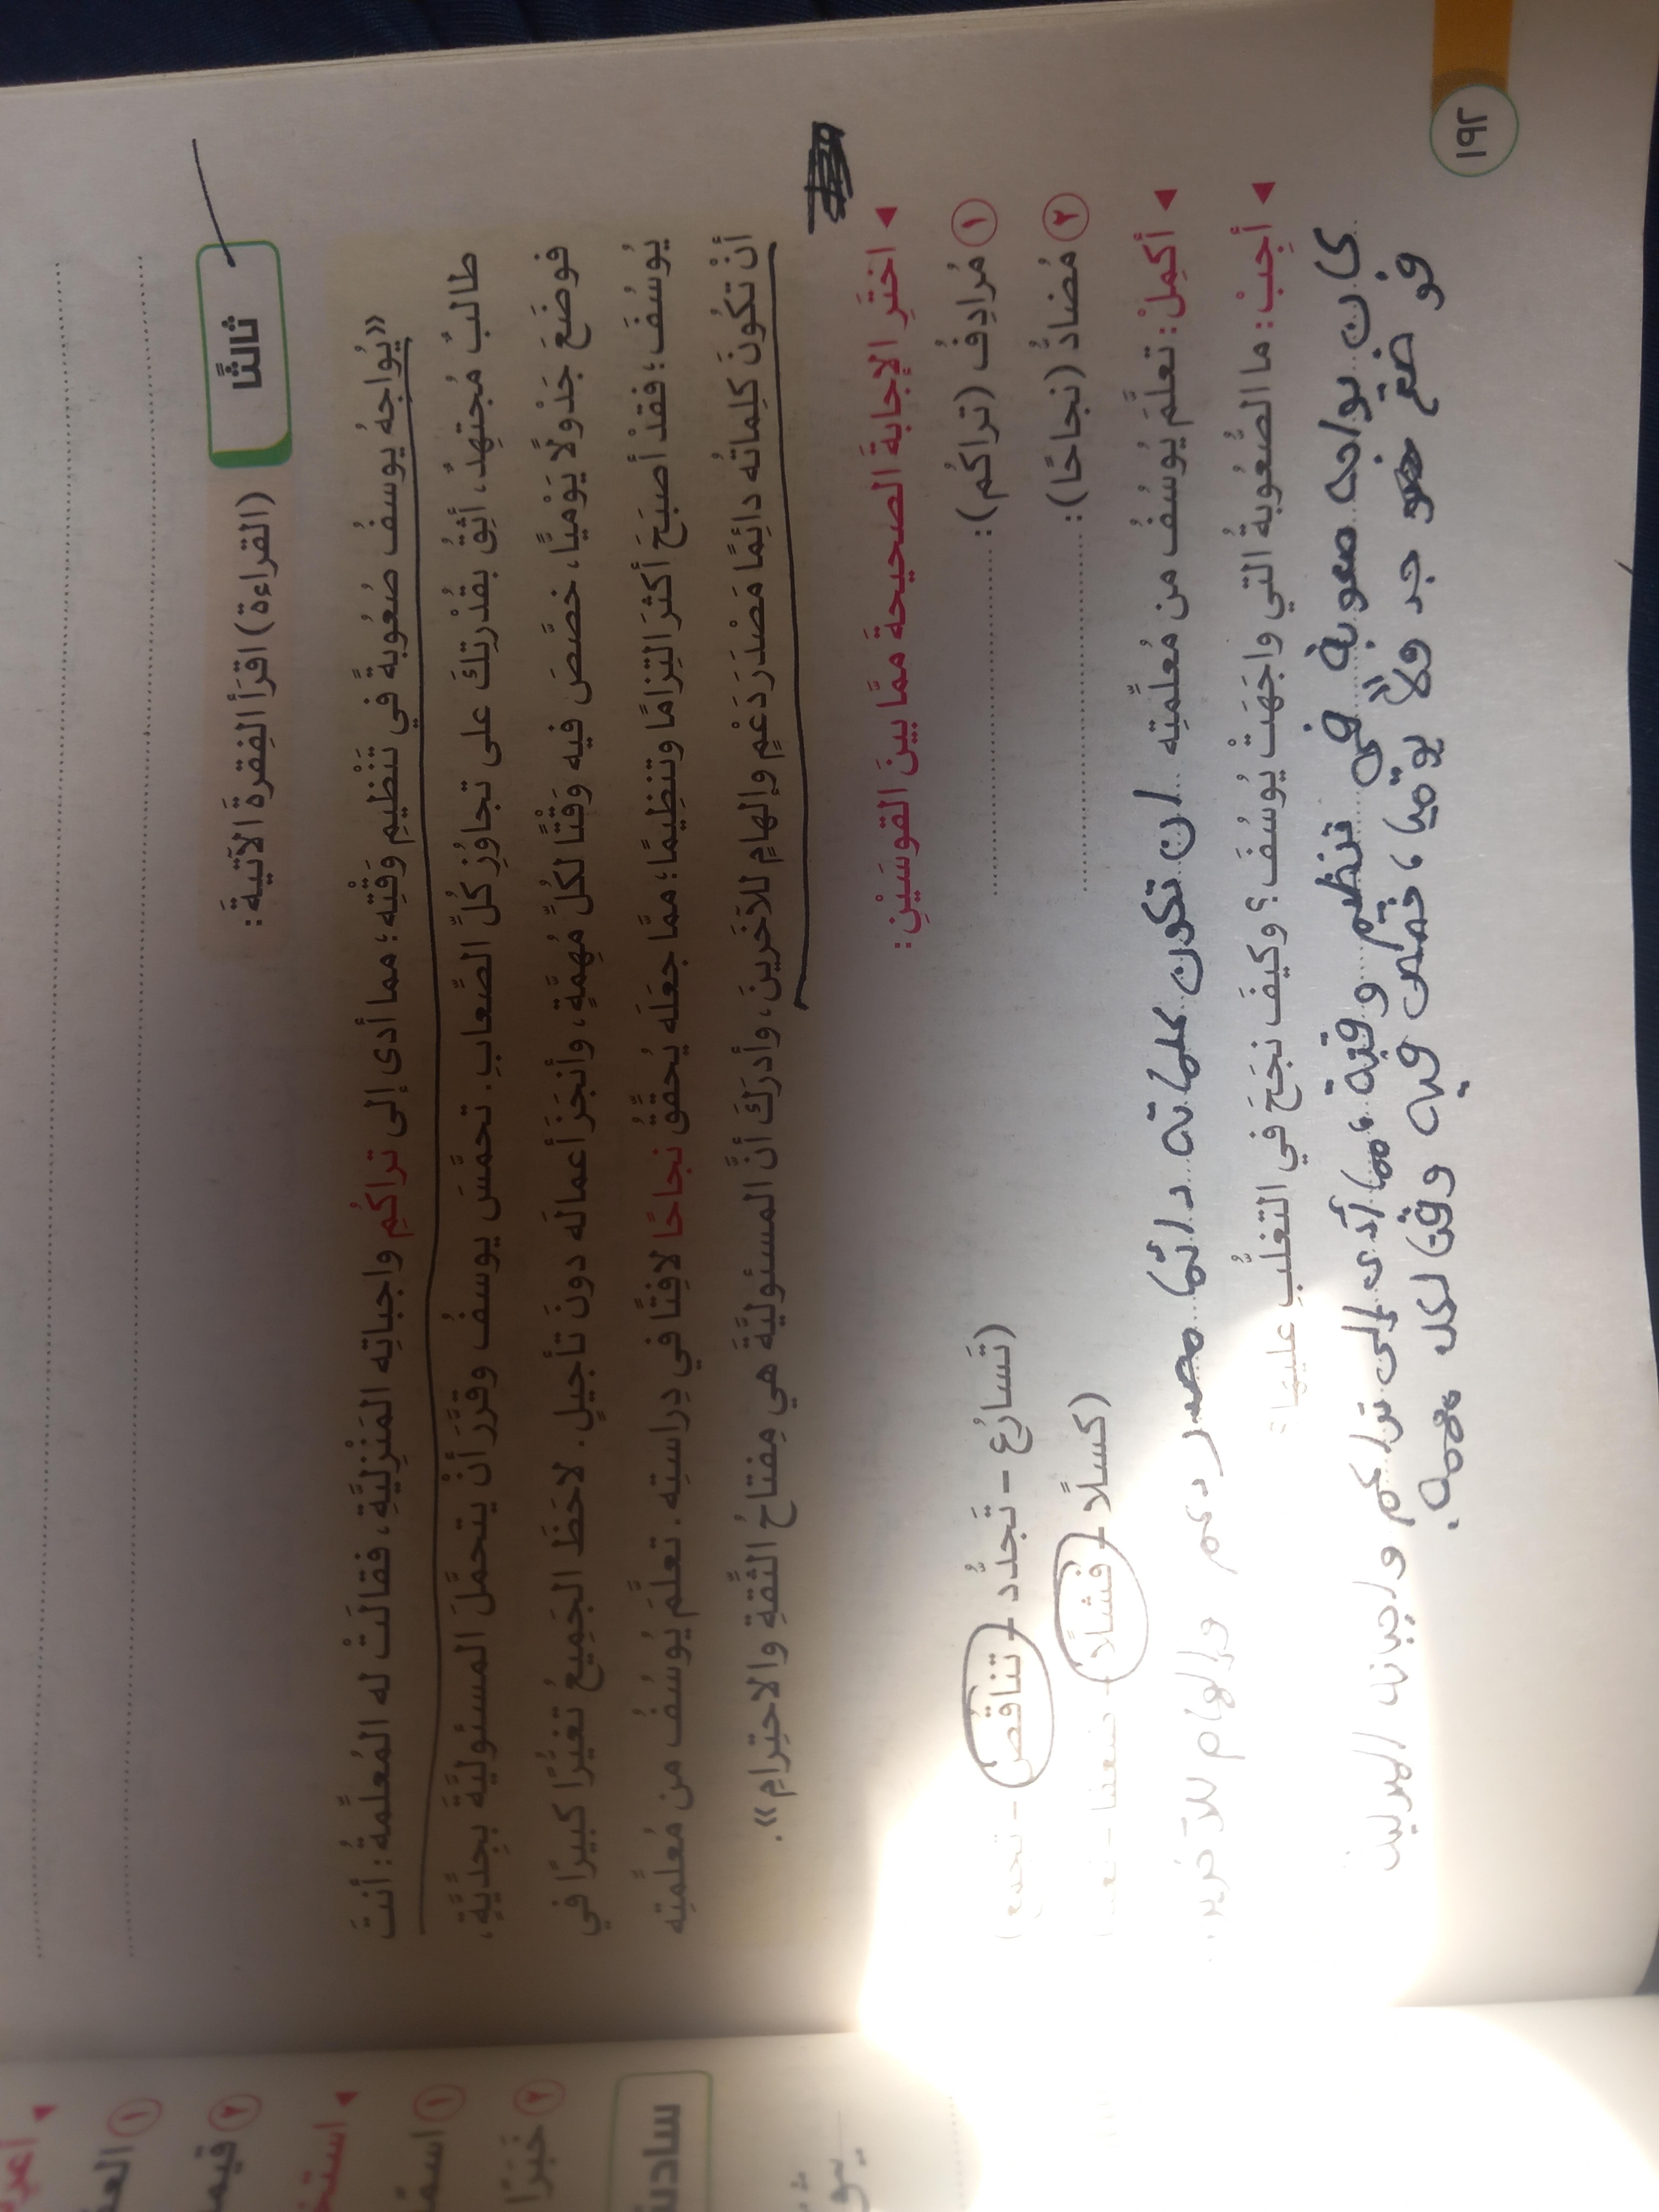 ثالثًا
(القراءة) اقرَأ الفِقرةَ الآتيةَ:
«يُواجهُ يوسفُ صُعُوبةً في تَنْظيمِ وَقْتِه؛ مما أدى إلى تراكُمِ واجباتِه المَنْزِليَّةِ، فقالَتْ له المُعلِّمةُ: أنتَ
طالبٌ مُجتهِدٌ، أثِقُ بقُدْرتِكَ على تجاوُزِ كُلِّ الصِّعابِ. تحمَّسَ يوسفُ وقرَّرَ أنْ يتحمَّلَ المسئوليَّةَ بجِدِّيَّةٍ،
فوضَعَ جَدْولًا يَوْميًّا، خصَّصَ فيه وَقْتًا لكُلِّ مُهِمَّةٍ، وأنجَزَ أعمالَه دونَ تأجيلٍ. لاحَظَ الجَمِيعُ تغيُّرًا كبيرًا في
يُوسُفَ؛ فقدْ أصبَحَ أكثرَ التِزامًا وتنظِيمًا؛ ممَّا جعَلَه يُحقِّقُ نجاحًا لافِتًا في دِراستِه. تعلَّمَ يُوسُفُ من مُعلِّمتِه
أنْ تكُونَ كلِماتُه دائِمًا مَصْدَرَ دَعْمٍ وإلهامٍ للآخَرينَ، وأدرَكَ أنَّ المسئوليَّةَ هي مِفتاحُ الثِّقةِ والاحتِرامِ».
◄ اختَرِ الإجابةَ الصحيحةَ ممَّا بينَ القوسَيْنِ:
١ مُرادِفُ (تراكُم): .......... (تَسارُع – تَجَدُّد – تناقُص – تجمع)
٢ مُضادُّ (نجاحًا): .......... (كسلًا – فشلًا
◄ أكمِلْ: تعلَّمَ يُوسُفُ من مُعلِّمتِه ان تكون كلماته دائما مصدر دعم وإلهام للآخرين
◄ أجِبْ: ما الصُّعُوبةُ التي واجَهَتْ يُوسُفَ؟ وكيفَ نجَحَ في التغلُّبِ عليها؟
كان يواجه صعوبة في تنظيم وقته، مما أدى إلى تراكم واجباته المنزلية
فوضع جدولًا يوميا، خصص فيه وقتا لكل مهمه.
١٩٢
◄
١ العد
٢ قيما
◄ استخ
١ اسمًا
٢ خبَرًا
سادس